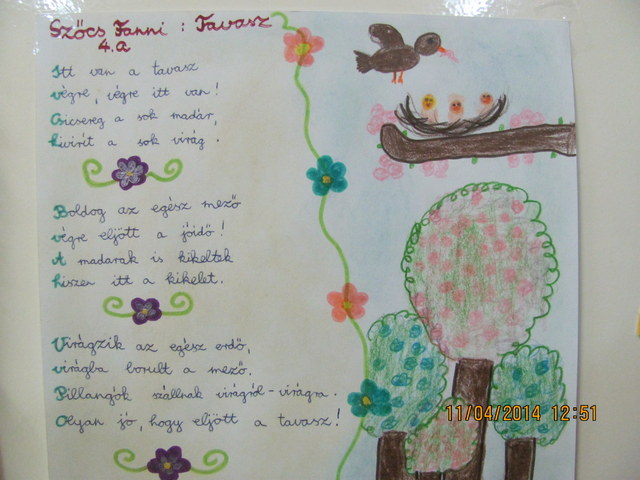 Szőcs Fanni : Tavasz
4.a
Itt van a tavasz
végre, végre itt van!
Csicsereg a sok madár,
kivirít a sok virág.
Boldog az egész mező
végre eljött a jóidő!
A madarak is kikeltek
hiszen itt a kikelet.
Virágzik az egész erdő,
virágba borult a mező.
Pillangók szállnak virágról-virágra.
Olyan jó, hogy eljött a tavasz!
11/04/2014 12:51